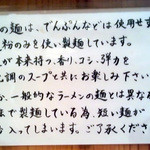 の麺は、でんぷんなどは使用せず
粉のみを使い製麺しています。
が本来持つ、香り、コシ、弾力を
調のスープと共にお楽しみ下さい
か、一般的なラーメンの麺とは異なる
で製麺している為、短い麺が
入ってしまいます。ご了承ください